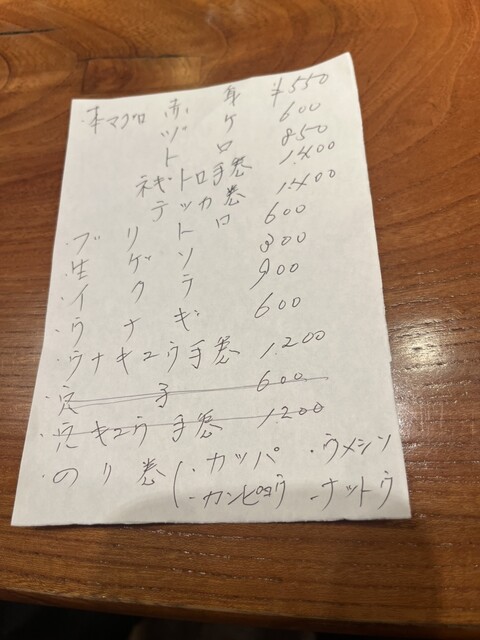 ・本マグロ 赤身 ¥550
ヅケ 600
トロ 850
ネギトロ手巻 1.400
テッカ巻 1.400
・ブリトロ 600
・生ゲソ 300
・イクラ 900
・ウナギ 600
・ウナキュウ手巻 1.200
・穴子 600
・穴キュウ手巻 1.200
・のり巻(・カッパ ・ウメシソ
-カンピョウ -ナットウ